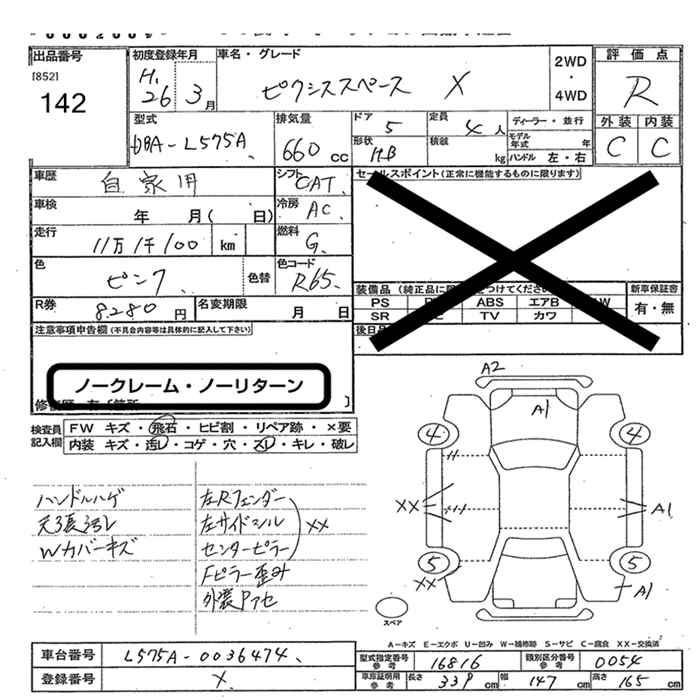 出品番号
[852]
142
初度登録年月
H.26 3月
車名・グレード
ピクシススペース X
2WD・4WD
評価点
R
外装 内装
C C
型式
DBA-L575A
排気量
660 cc
ドア
5
形状
H.B
定員
4 人
積載
kg
ディーラー・並行
モデル年式 年
ハンドル 左・右
車歴
自家用
シフト
CAT
車検
年 月( 日)
冷房
AC
走行
11万1千100 km
燃料
G
色
ピンク
色替
色コード
R65
R券
8,280 円
名変期限
月 日
セールスポイント(正常に機能するものに限ります)
装備品
PS
ABS
エアB
SR
TV
カワ
新車保証書
有・無
後日
注意事項申告欄(不具合内容等は具体的に記入して下さい)
ノークレーム・ノーリターン
検査員記入欄
FW キズ・飛石・ヒビ割・リペア跡・×要
内装 キズ・汚レ・コゲ・穴・スレ・キレ・破レ
ハンドルハゲ
天張汚レ
Wカバーキズ
左Rフェンダー
左サイドシル
センターピラー
XX
Fピラー歪み
外装Pアセ
A2
A1
4
4
XX
A1
5
5
XX
A1
スペア
A-キズ E-エクボ U-凹み W-補修跡 S-サビ C-腐食 XX-交換済
車台番号
L575A-0036474
登録番号
X
型式指定番号 参考
16816
類別区分番号 参考
0054
車庫証明用 参考
長さ 339 cm
幅 147 cm
高さ 165 cm